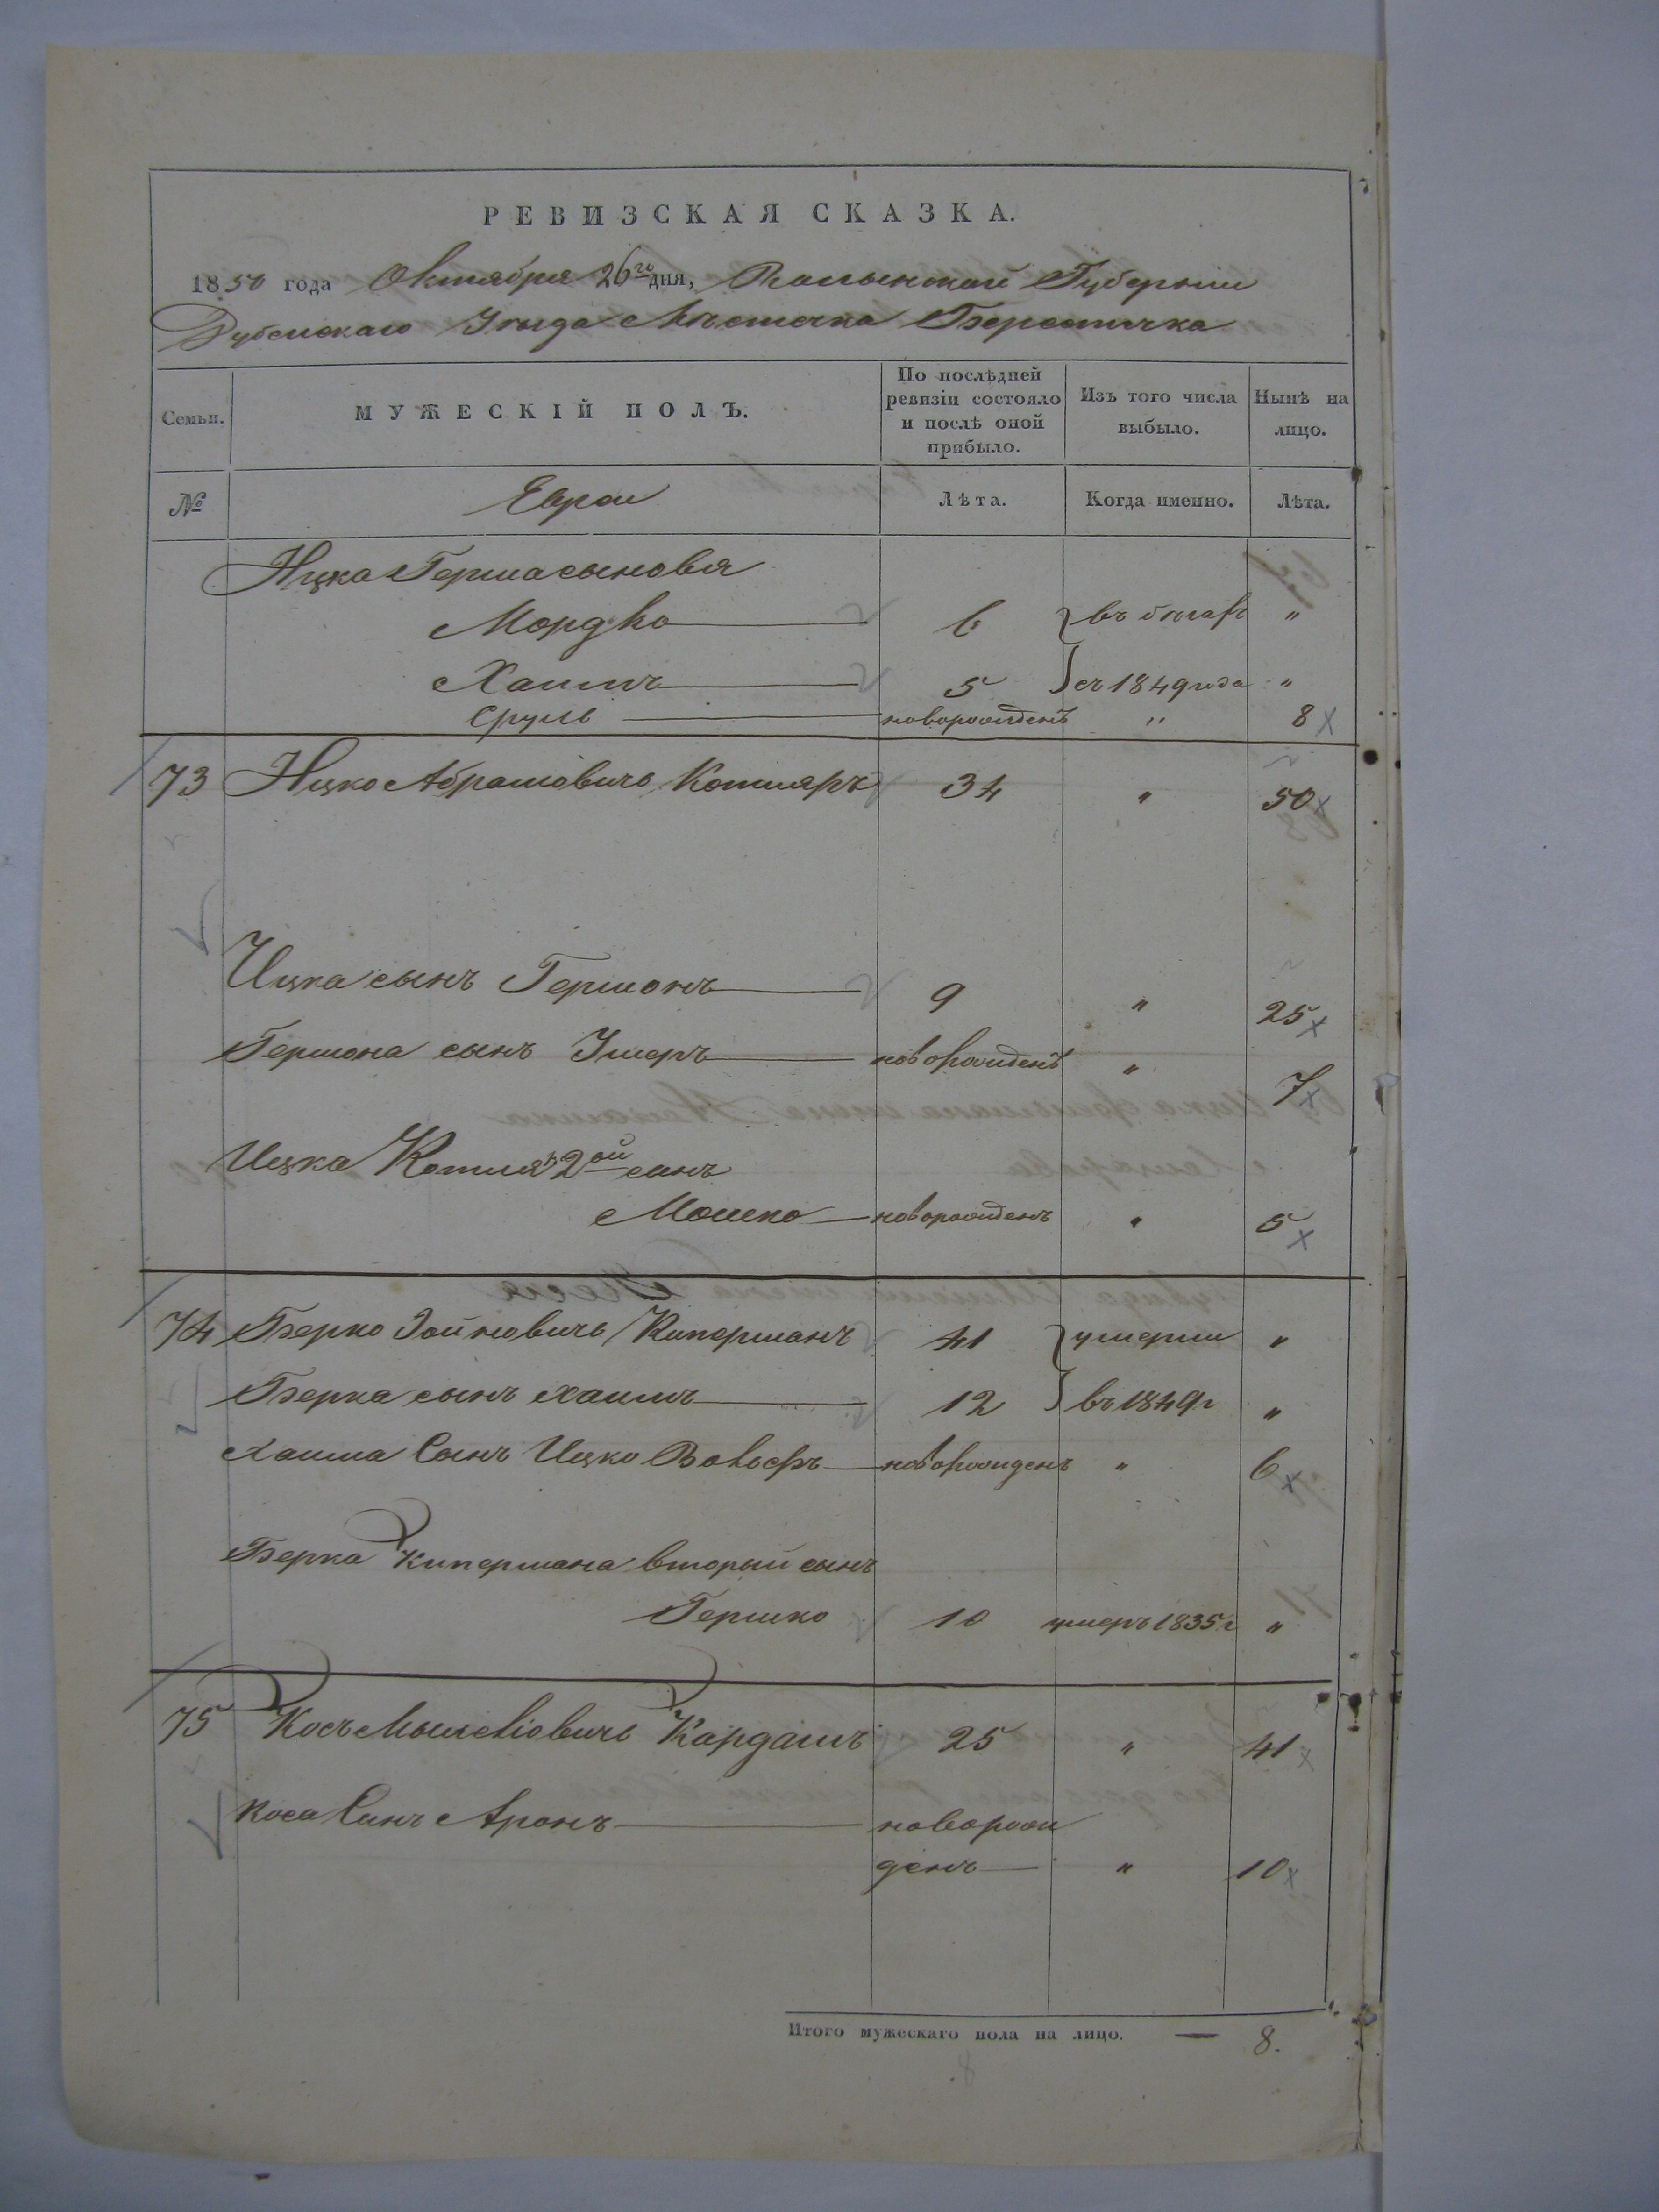 РЕВИЗСКАЯ СКАЗКА.
1850 года Октября 26го дня, Волынской Губернии
Дубенскаго Уезда Местечка Берестечка
Семьи. МУЖЕСКІЙ ПОЛЪ. По послѣдней ревизіи состояло и послѣ оной прибыло. Изъ того числа выбыло. Нынѣ на лицо.
№ Евреи Лѣта. Когда именно. Лѣта.
Ицка Герша сыновья
Мордко 6 въ бегахъ "
Хаимъ 5 съ 1849 года "
Сруль новорожденъ " 8
73 Ицко Абрамовичъ Котляръ 34 " 50
Ицка сынъ Гершонъ 9 " 25
Гершона сынъ новорожденъ " 7
Ицка Котляр 2ой сынъ
Мошко новорожденъ " 5
74 Берко Зойновичъ Киперманъ 41 умерли "
Берка сынъ Хаимъ 12 въ 1849г "
Хаима Сынъ Ицко Вольфъ новорожденъ " 6
Берка Кипермана вторый сынъ
Гершко 10 умеръ 1835г "
75 Кось Мошковичъ Кардашъ 25 " 41
Коса Сынъ Аронъ новорож
денъ " 10
Итого мужескаго пола на лицо. — 8.